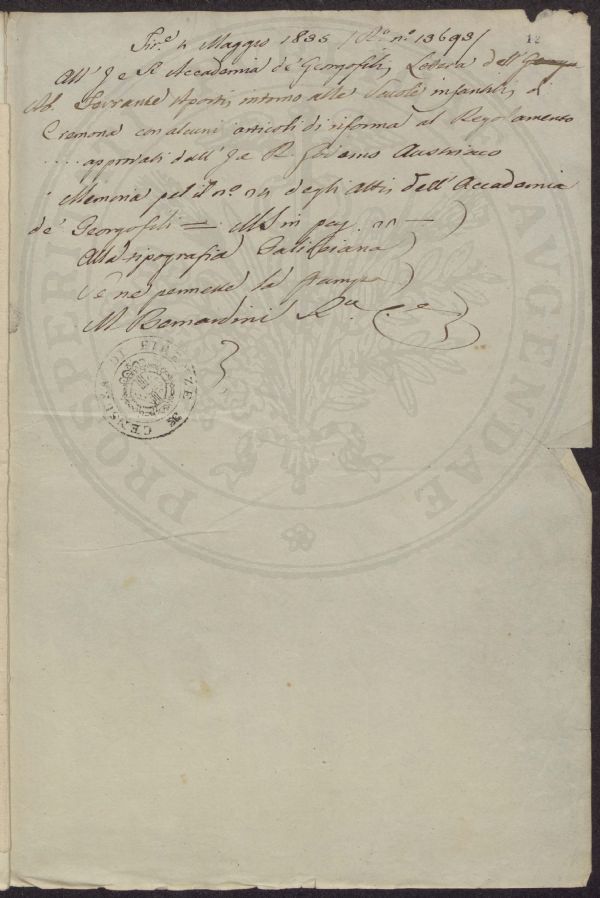 12
Fir.e 4 Maggio 1835 / R.o n.o 13693/
All' I e R Accademia de' Georgofili, Lettera dell'
Ab. Ferrante Aporti intorno alle Scuole infantili, di
Cremona con alcuni articoli di riforma al Regolamento
.... approvati dall' I e R. Governo Austriaco
Memoria pel n.o degli Atti dell' Accademia
de' Georgofili = MS in pag. —)
Alla tipografia Galileiana )
Se ne permette la stampa )
M Bernardini R.
CENSURA DI FIRENZE
PROSPERITATI AUGENDAE